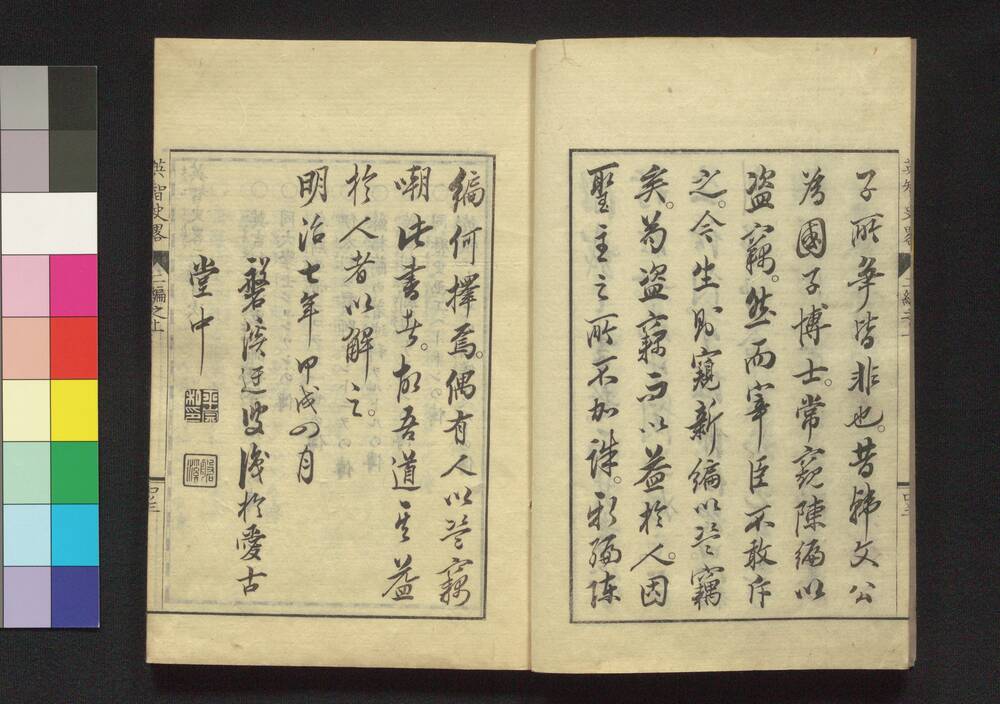 子所争皆非也。昔韓文公
為國子博士。常窺陳編以
盗竊。然而宰臣不敢斥
之。今生則窺新編以盗竊
矣。為盗竊而以益於人。因
聖主之所不加誅。新編陳
編何擇焉。偶有人以盗竊
嘲此書者。故吾道其益
於人者以解之。
明治七年甲戌四月
磐溪迂叟識於愛古
堂中
英智史畧
二編之上
四ノ三